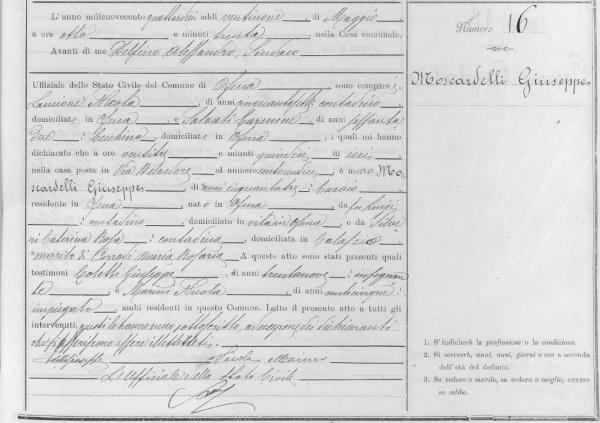 L'anno millenovecento quattordici addì ventinove, di Maggio,
a ore otto e minuti trenta, nella Casa comunale.
Avanti di me Delfino Alessandro, Sindaco
Uffiziale dello Stato Civile del Comune di Ofena, sono comparsi
Lancione Nicola, di anni cinquantasette contadino,
domiciliato in Ofena, e Salvati Carmine, di anni sessanta
due domiciliato in Ofena; i quali mi hanno
dichiarato che a ore ventitre e minuti quindici di ieri,
nella casa posta in Via Belvedere al numero è morto Mo-
scardelli Giuseppes di anni cinquantatre
residente in Ofena, nato in Ofena, da fu Luigi,
contadino, domiciliato in vita in Ofena, e da Silve
ri Caterina Rosa contadina, domiciliata in
marito di Maria Rosaria A questo atto sono stati presenti quali
testimoni Coletti Giuseppe, di anni trentanove insegnan
te, e Marini Nicola, di anni
impiegato ambi residenti in questo Comune. Letto il presente atto a tutti gli
intervenuti, questi lo hanno meco sottoscritto, ad eccezione dei dichiaranti
che essere illetterati
Nicola Marini
L'Uffiziale dello Stato Civile
Numero 16
Moscardelli Giuseppes
1. S'indicherà la professione o la condizione.
2. Si scriverà, anni, mesi, giorni o ore a seconda
dell'età del defunto.
3. Se vedovo o marito, se vedova o moglie, ovvero
se celibe.